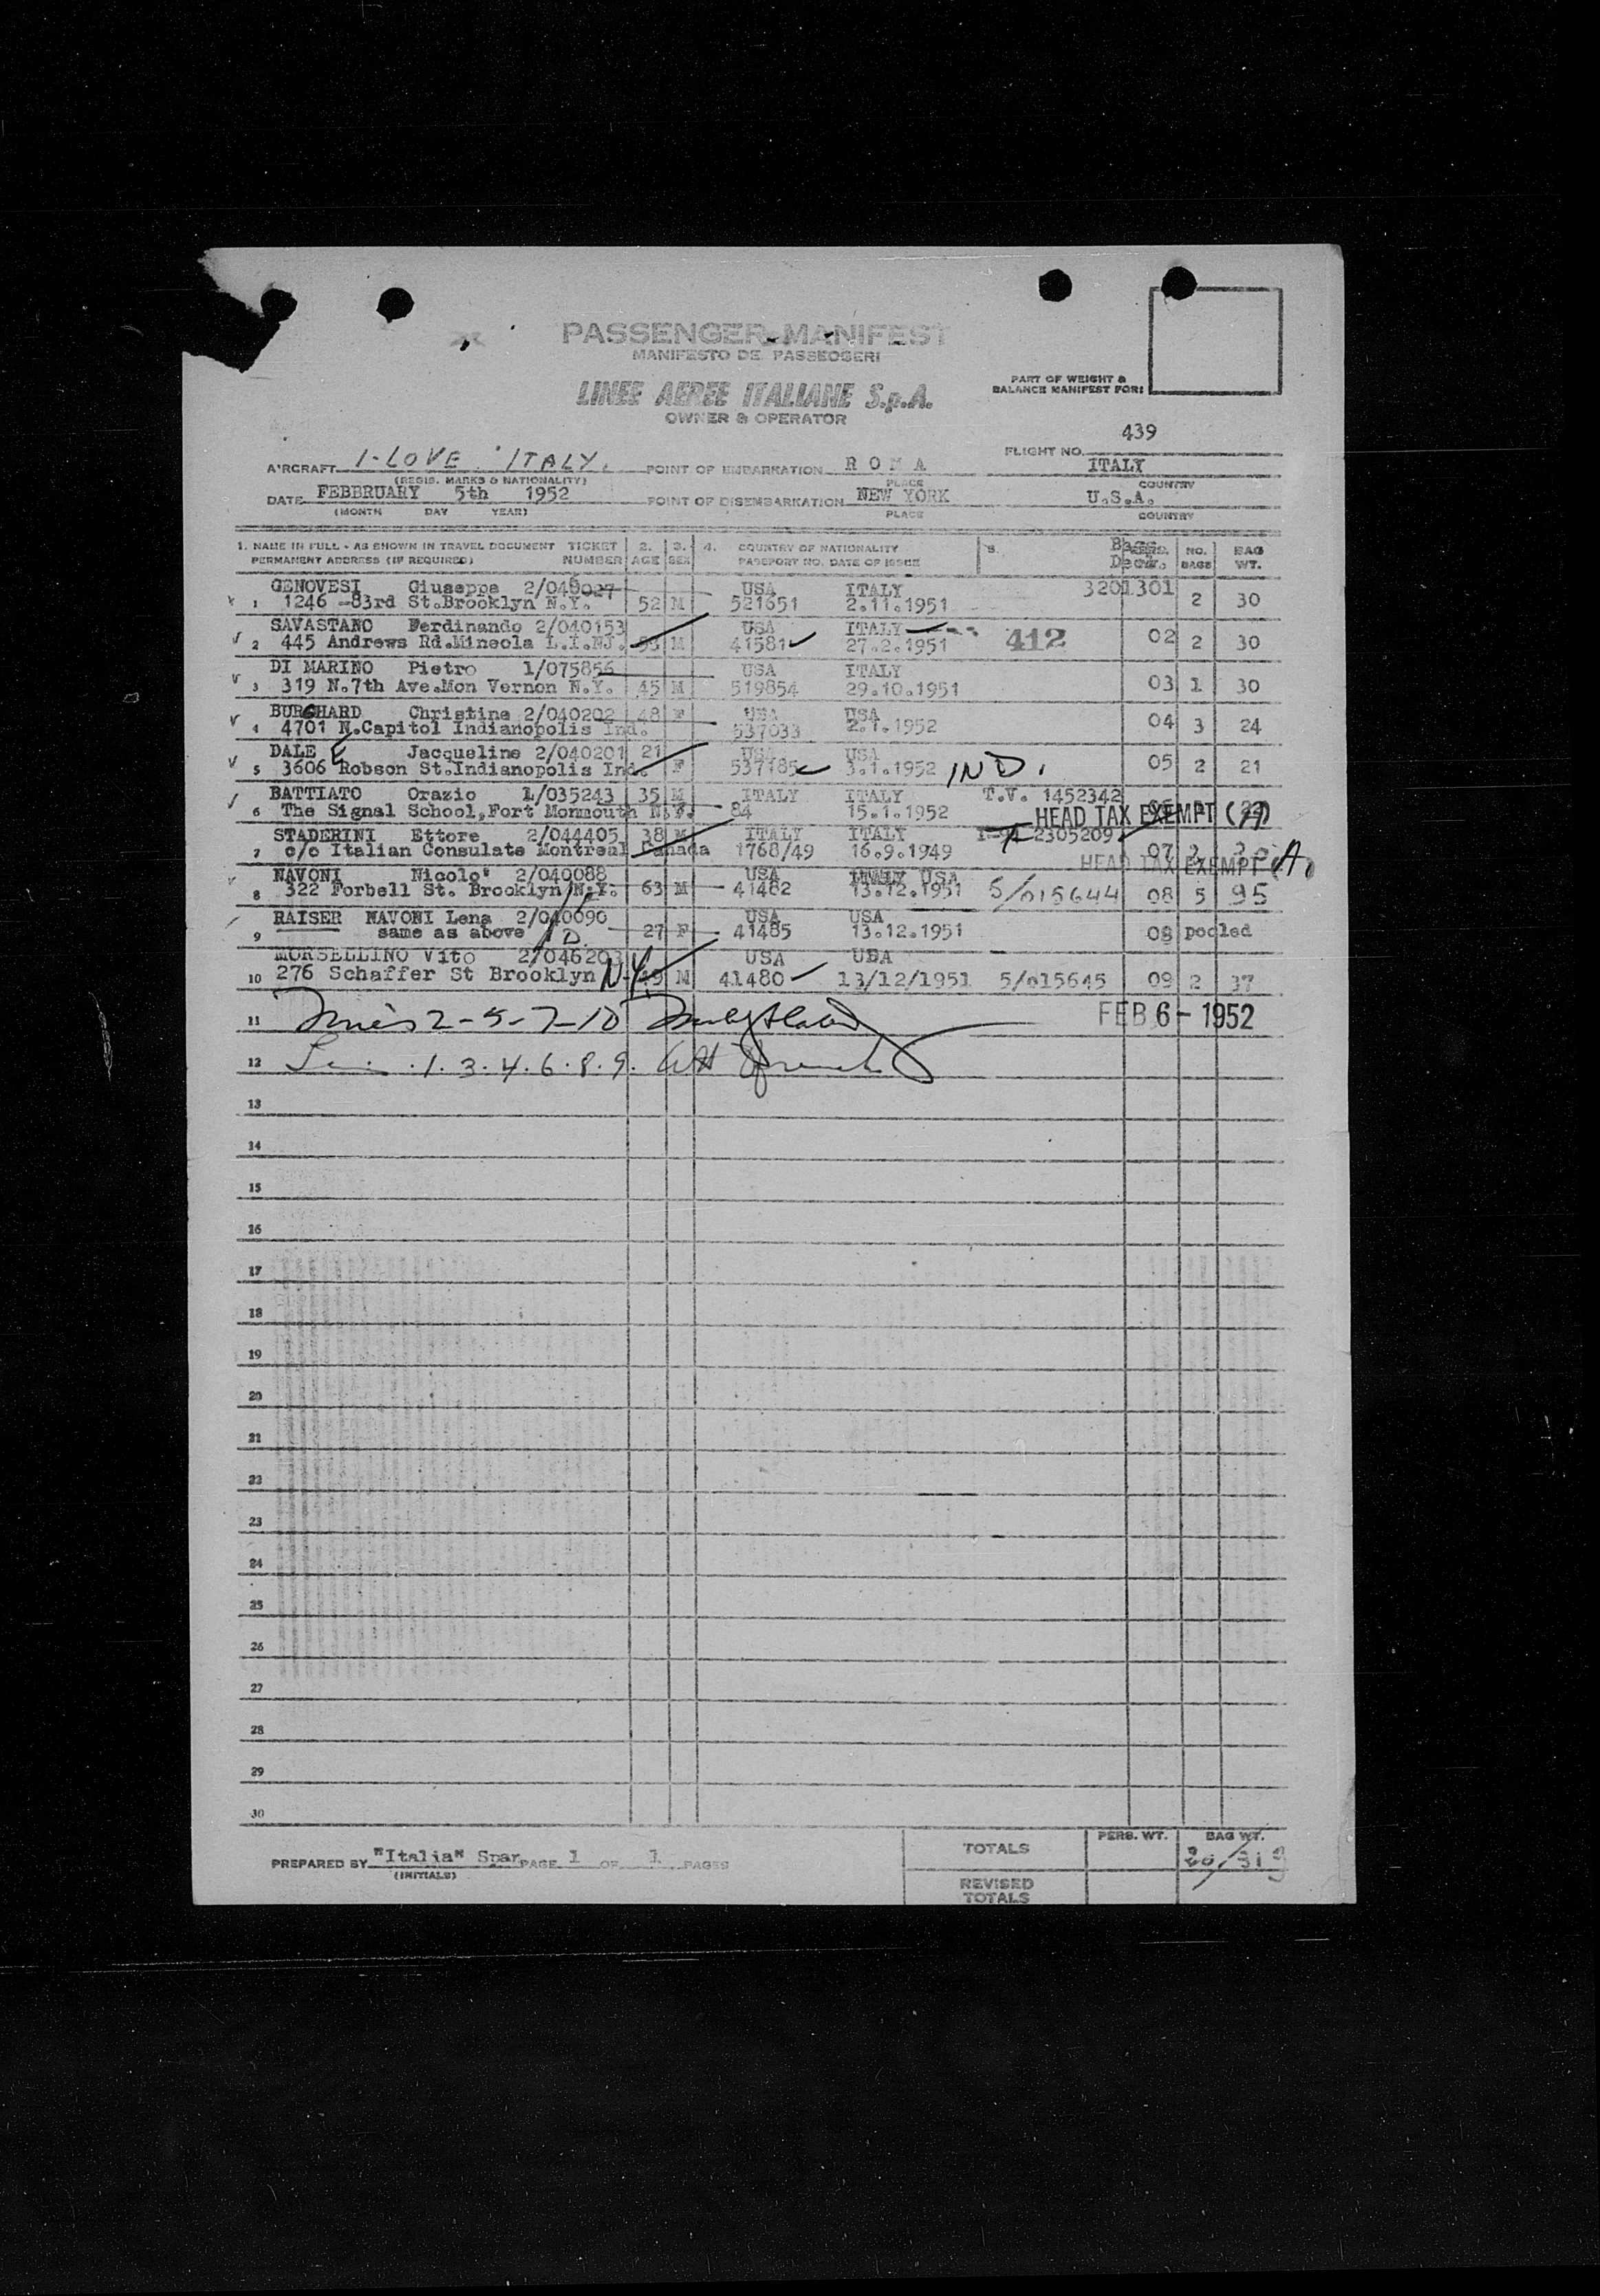 PASSENGER MANIFEST
MANIFESTO DE PASSEGGERI
LINEE AEREE ITALIANE S.p.A.
OWNER & OPERATOR
PART OF WEIGHT &
BALANCE MANIFEST FOR:
439
FLIGHT NO.
AIRCRAFT I-LOVE ITALY. POINT OF EMBARKATION R O M A ITALY
(REGIS. MARKS & NATIONALITY) PLACE COUNTRY
DATE FEBBRUARY 5th 1952 POINT OF DISEMBARKATION NEW YORK U.S.A.
(MONTH DAY YEAR) PLACE COUNTRY
1. NAME IN FULL - AS SHOWN IN TRAVEL DOCUMENT TICKET 2. 3. 4. COUNTRY OF NATIONALITY 5. NO. BAG
PERMANENT ADDRESS (IF REQUIRED) NUMBER AGE SEX PASSPORT NO. DATE OF ISSUE BAGS WT.
GENOVESI Giuseppe USA ITALY 3201301
1 1246 -83rd St.Brooklyn N.Y. 52 M 521651 2.11.1951 2 30
SAVASTANO Ferdinando 2/040153 USA ITALY
2 445 Andrews Rd.Mineola L.I.NJ. M 41581 27.2.1951 412 02 2 30
DI MARINO Pietro 1/075856 USA ITALY
3 319 N.7th Ave.Mon Vernon N.Y. 45 M 519854 29.10.1951 03 1 30
BURGHARD Christine 2/040202 48 F USA USA
4 4701 N.Capitol Indianopolis Ind. 537033 2.1.1952 04 3 24
DALE E Jacqueline 2/040201 21 USA USA
5 3606 Robson St.Indianopolis Ind. F 537185 3.1.1952 IND. 05 2 21
BATTIATO Orazio 1/035243 35 M ITALY ITALY T.V. 1452342
6 The Signal School,Fort Monmouth N.Y. 84 15.1.1952 HEAD TAX EXEMPT
STADERINI Ettore 2/044405 38 M ITALY ITALY 2305209
7 c/o Italian Consulate Montreal Canada 1768/49 16.9.1949 07 2
HEAD TAX EXEMPT (A)
NAVONI Nicolo' 2/040088 USA ITALY USA
8 322 Forbell St. Brooklyn N.Y. 63 M 41482 13.12.1951 5/015644 08 5 95
RAISER NAVONI Lena 2/040090 USA USA
9 same as above 27 F 41485 13.12.1951 08 pooled
MORSELLINO Vito 2/046203 USA USA
10 276 Schaffer St Brooklyn N.Y. 49 M 41480 13/12/1951 5/015645 09 2 37
11 2-5-7-10 FEB 6 - 1952
12 .1.3.4.6.8.9.
13
14
15
16
17
18
19
20
21
22
23
24
25
26
27
28
29
30
PERS. WT. BAG WT.
TOTALS
PREPARED BY "Italia" Spar PAGE 1 OF 1 PAGES
(INITIALS)
REVISED
TOTALS